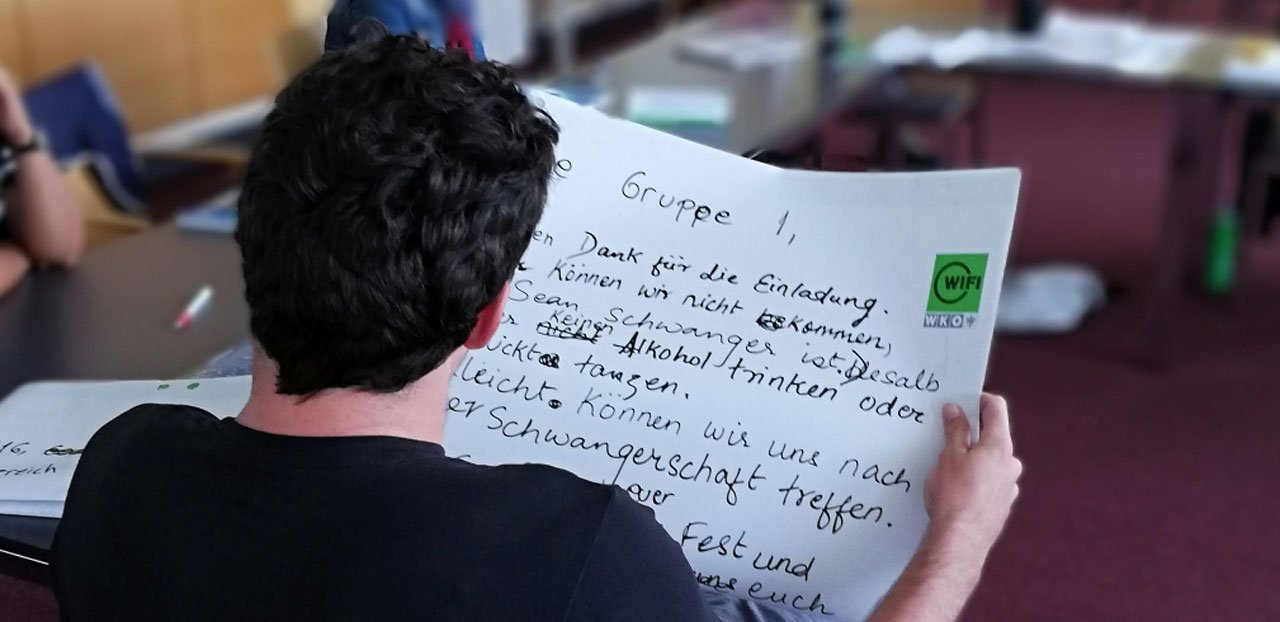 e Gruppe 1,
en Dank für die Einladung.
können wir nicht kommen,
Sean Schwanger ist. Desalb
r keinen Alkohol trinken oder
ückt tanzen.
leicht können wir uns nach
er Schwangerschaft treffen.
euer
Fest und
euch
WIFI
WKO
16,
ereich